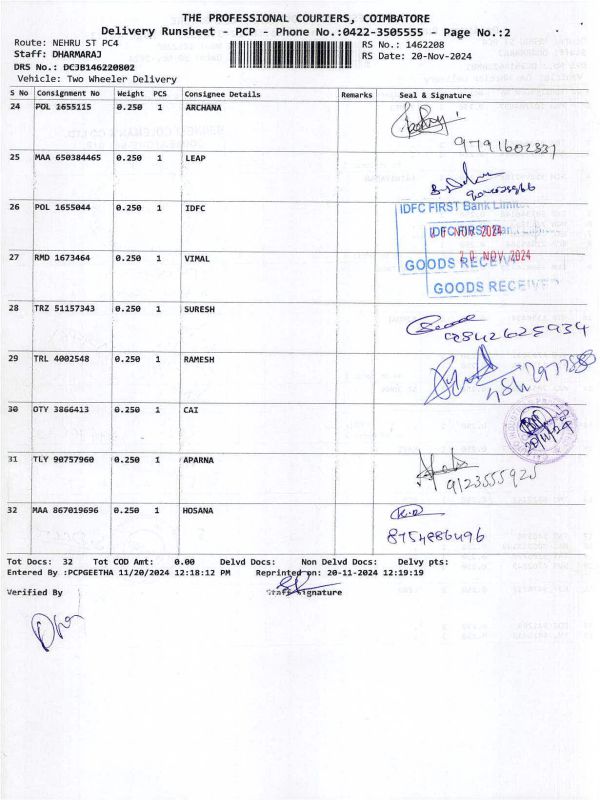 THE PROFESSIONAL COURIERS, COIMBATORE
Delivery Runsheet - PCP - Phone No.:0422-3505555 - Page No.:2
Route: NEHRU ST PC4 RS No.: 1462208
Staff: DHARMARAJ RS Date: 20-Nov-2024
DRS No.: DC3B146220802
Vehicle: Two Wheeler Delivery
S No Consignment No Weight PCS Consignee Details Remarks Seal & Signature
24 POL 1655115 0.250 1 ARCHANA
9791602337
25 MAA 650384465 0.250 1 LEAP
26 POL 1655044 0.250 1 IDFC
IDFC FIRST Bank Limited
IDFC FIRST Bank Limited
20 NOV 2024
27 RMD 1673464 0.250 1 VIMAL
20 NOV 2024
GOODS RECEIVED
GOODS RECEIVED
28 TRZ 51157343 0.250 1 SURESH
9842625934
29 TRL 4002548 0.250 1 RAMESH
30 OTY 3866413 0.250 1 CAI
20/11/24
31 TLY 90757960 0.250 1 APARNA
9123555925
32 MAA 867019696 0.250 1 HOSANA
8754886496
Tot Docs: 32 Tot COD Amt: 0.00 Delvd Docs: Non Delvd Docs: Delvy pts:
Entered By :PCPGEETHA 11/20/2024 12:18:12 PM Reprinted on: 20-11-2024 12:19:19
Verified By Staff Signature